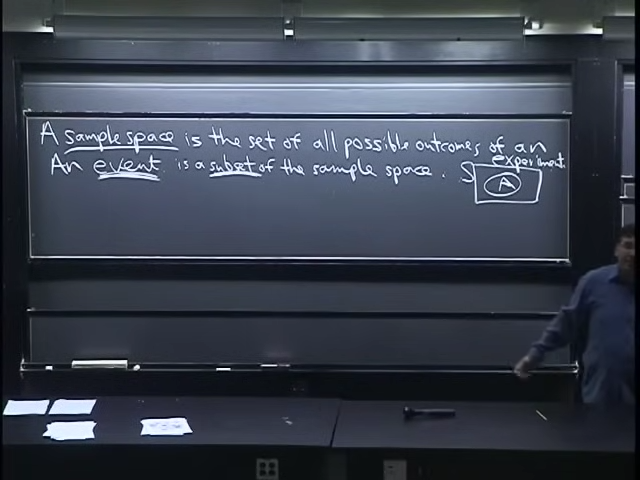 A sample space is the set of all possible outcomes of an experiment.
An event is a subset of the sample space. S
A